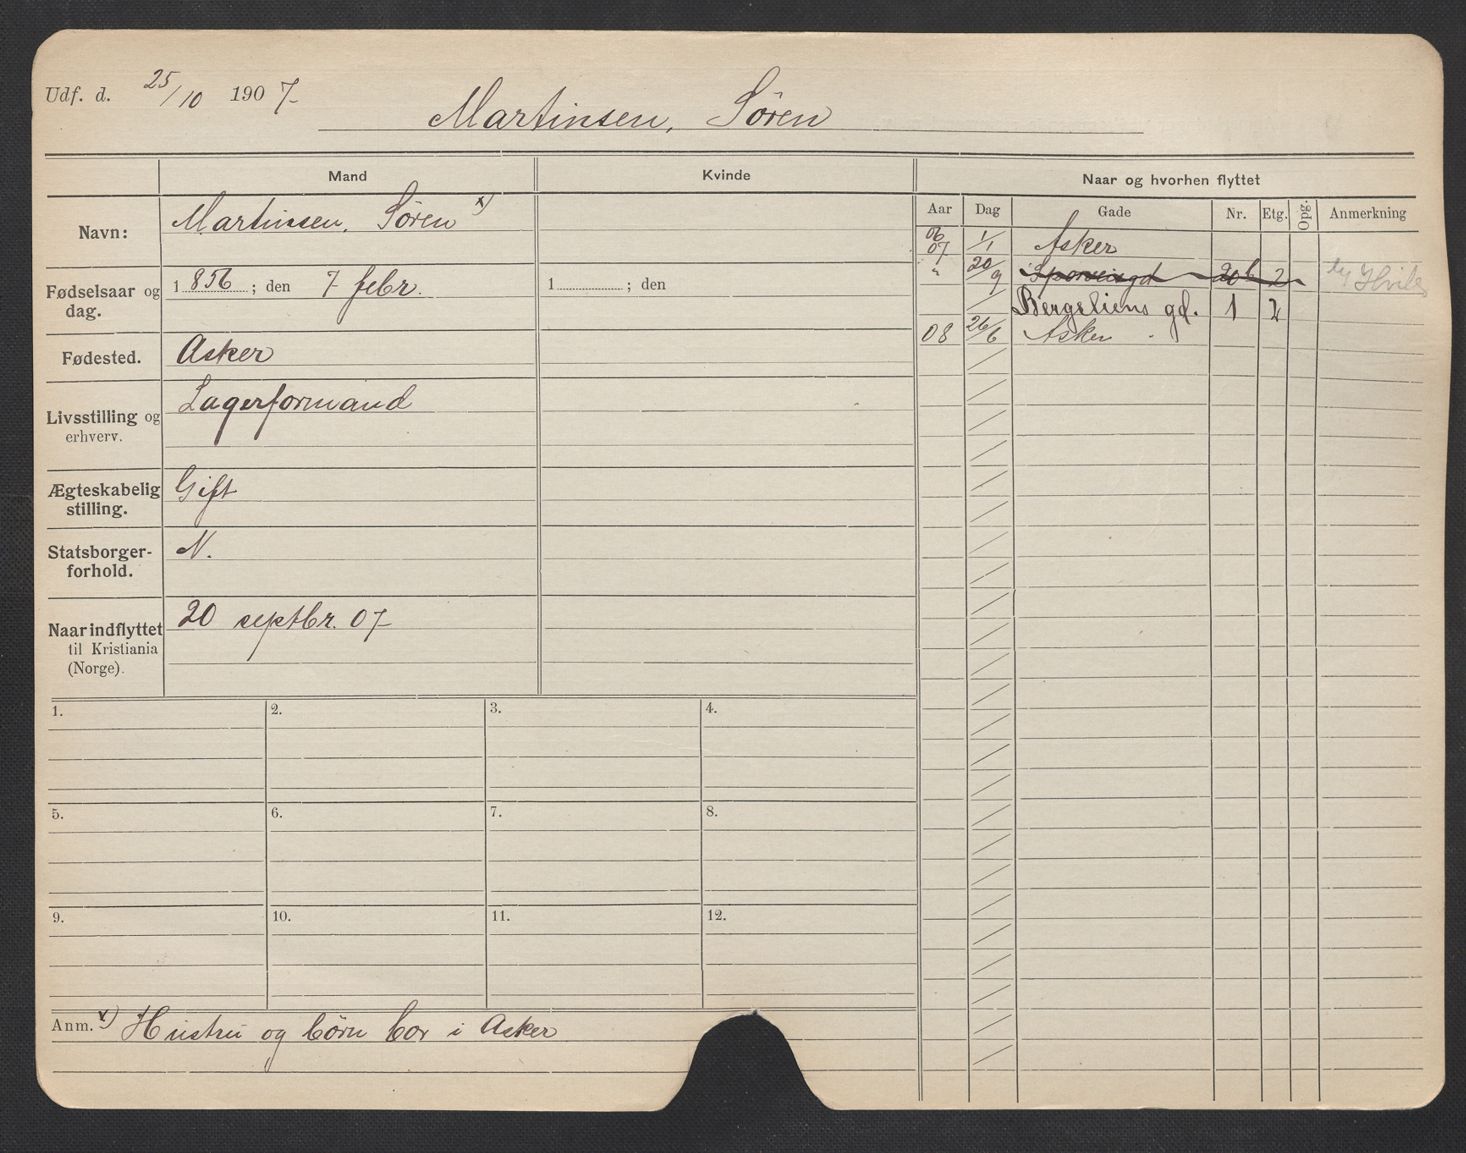 Udf. d. 25/10 1907
Martinsen, Sören
Mand
Kvinde
Naar og hvorhen flyttet
Aar Dag Gade Nr. Etg. Opg. Anmerkning
Navn:
Martinsen, Sören x)
06
07 1/1 Asker
" 20/9 Sporveisgd 20b 2
Bergsliens gd. 1 2
08 26/6 Asker
Fødselsaar og
dag.
1856; den 7 febr.
1 ; den
Fødested.
Asker
Livsstilling og
erhverv.
Lagerformand
Ægteskabelig
stilling.
Gift
Statsborger-
forhold.
N.
Naar indflyttet
til Kristiania
(Norge).
20 septbr. 07
1. 2. 3. 4.
5. 6. 7. 8.
9. 10. 11. 12.
Anm. x) Hustru og börn bor i Asker